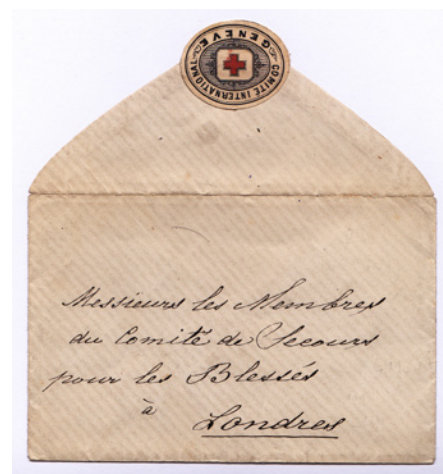 COMITÉ INTERNATIONAL
GENÈVE
Messieurs les Membres
du Comité de Secours
pour les Blessés
à Londres